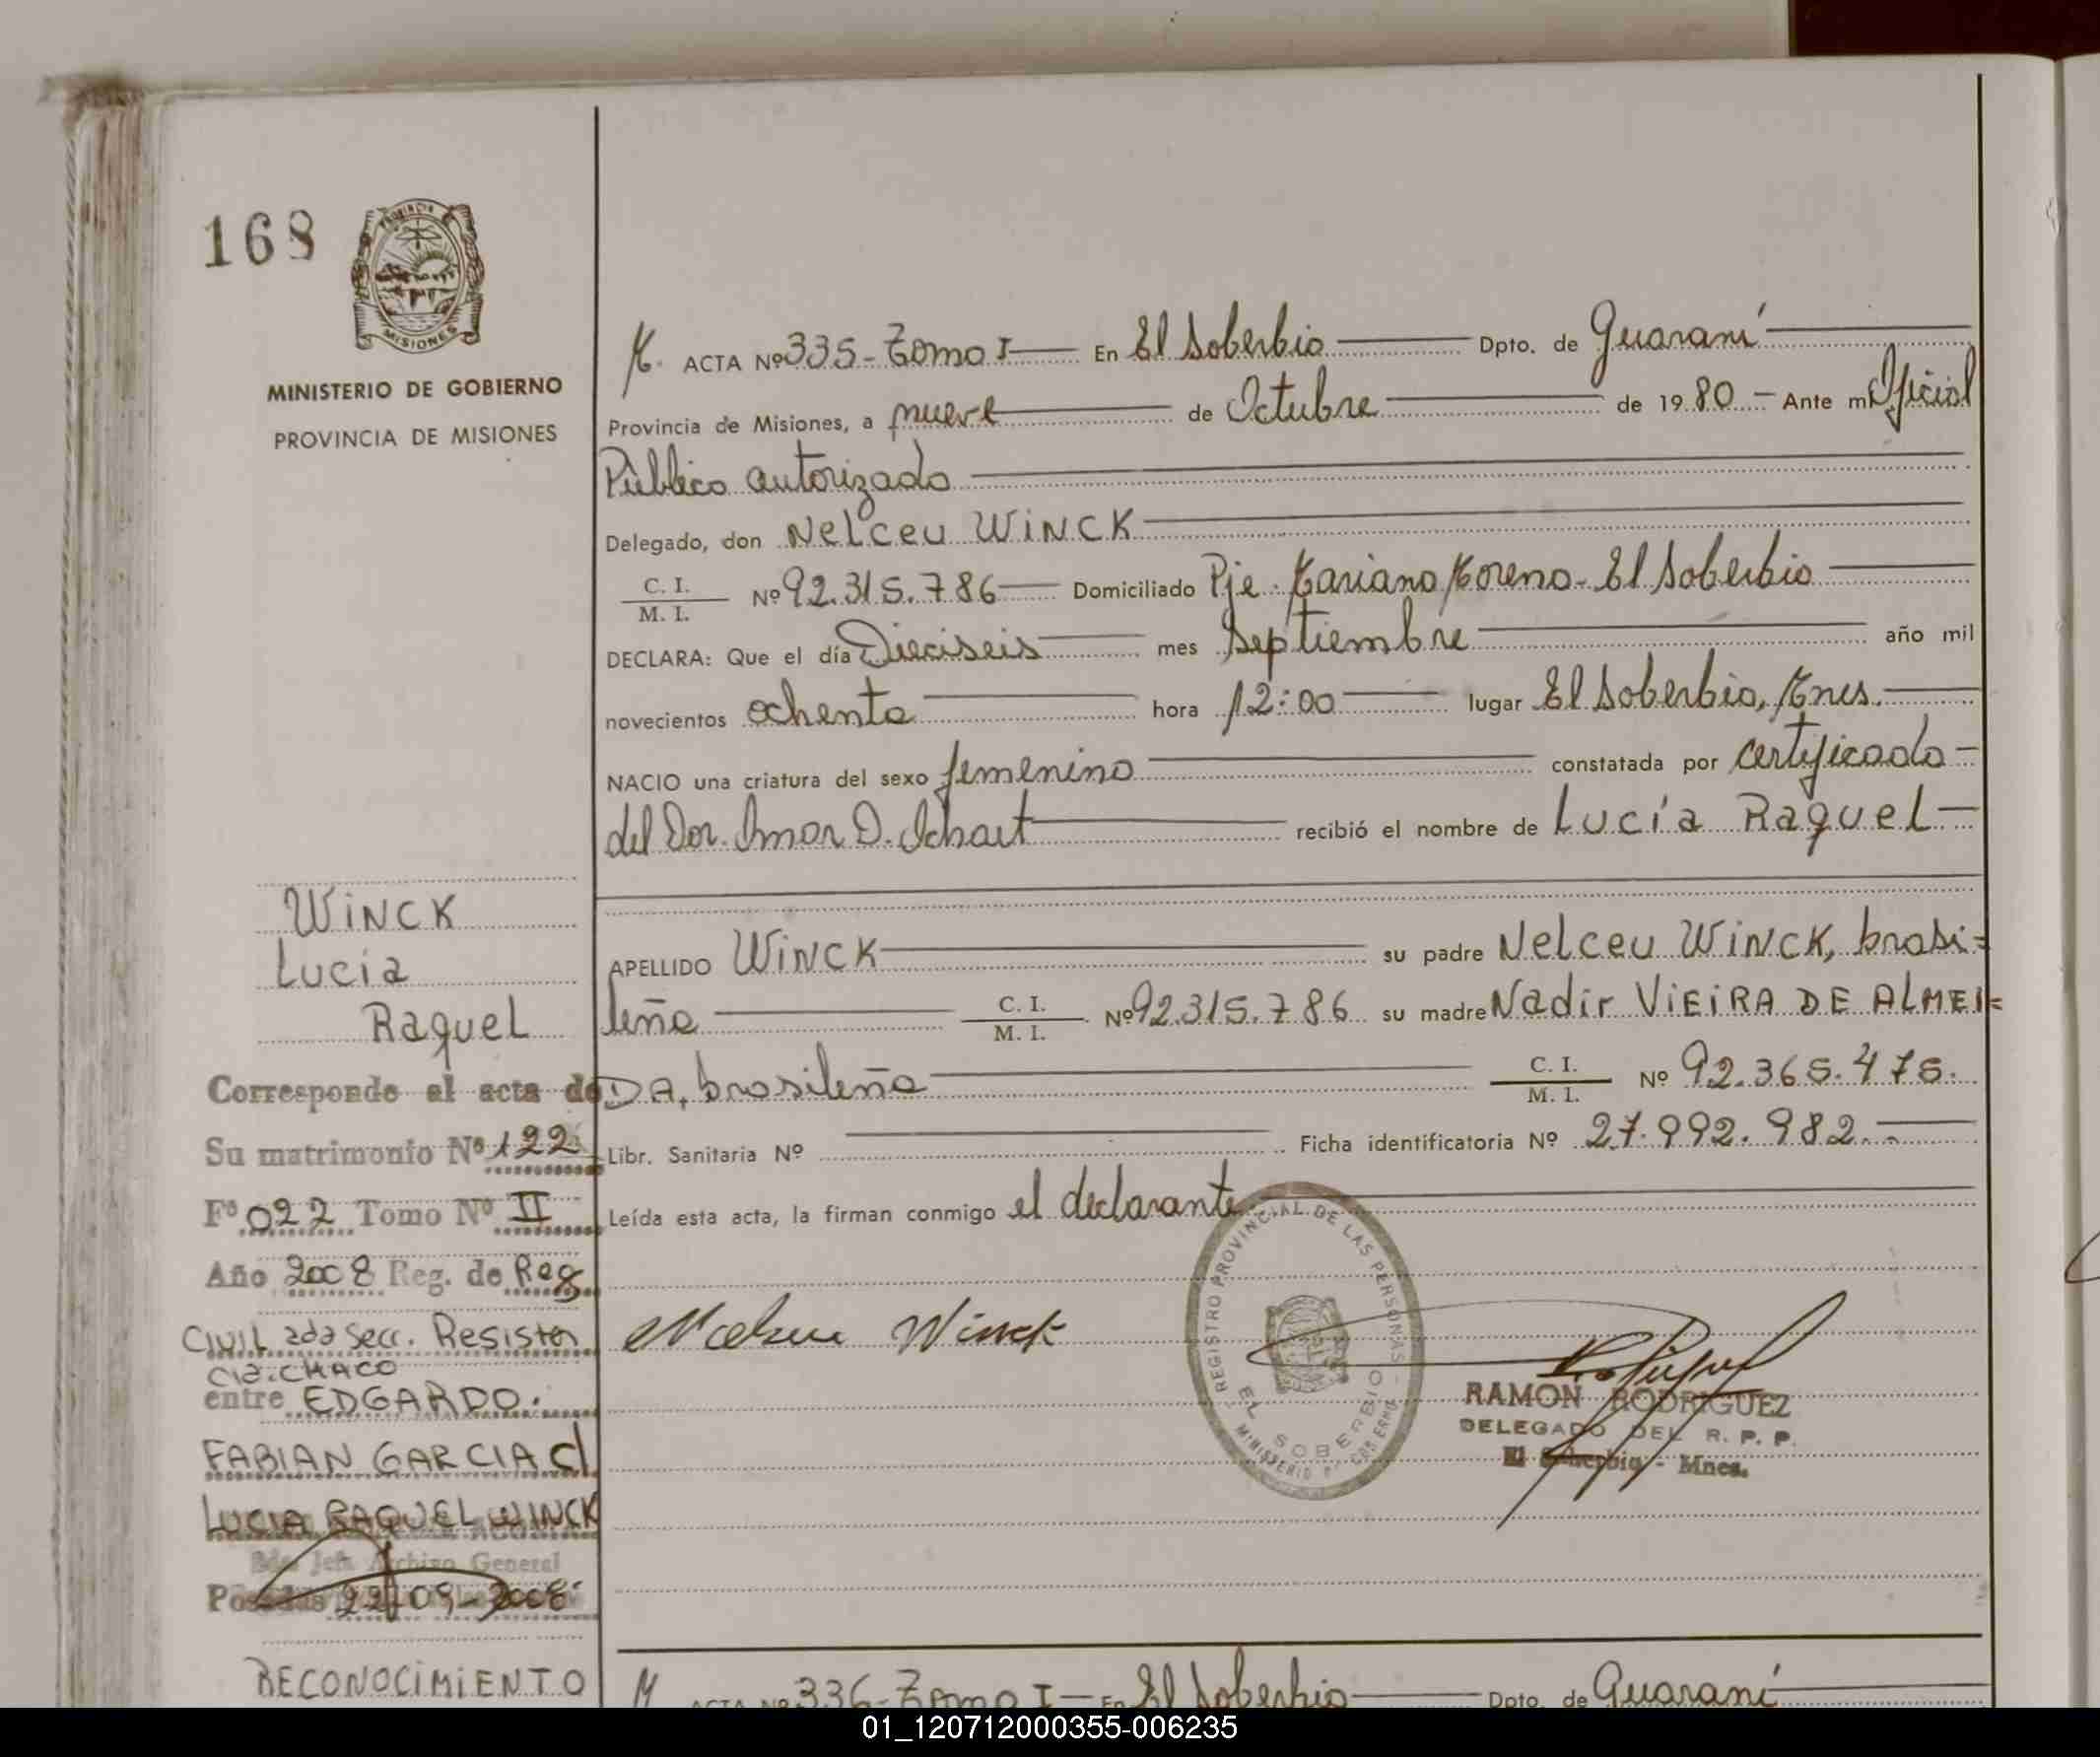 168
PROVINCIA
MISIONES
MINISTERIO DE GOBIERNO
PROVINCIA DE MISIONES
ACTA Nº 335- Tomo I En El Soberbio Dpto. de Guaraní
Provincia de Misiones, a nueve de Octubre de 1980 - Ante mí Oficial
Público autorizado
Delegado, don Nelceu WINCK
C. I.
M. I. Nº 92.315.786 Domiciliado Pje. Mariano Moreno- El Soberbio
DECLARA: Que el día Dieciseis mes Septiembre año mil
novecientos ochenta hora 12:00 lugar El Soberbio, Mnes.
NACIO una criatura del sexo femenino constatada por certificado-
del Dor. Omar D. recibió el nombre de Lucía Raquel-
APELLIDO WINCK su padre Nelceu WINCK, brasi=
leña C. I.
M. I. Nº 92.315.786 su madre Nadir VIEIRA DE ALMEI=
DA, brasileña C. I.
M. I. Nº 92.365.475.
Libr. Sanitaria Nº Ficha identificatoria Nº 27.992.982.-
Leída esta acta, la firman conmigo el declarante
Winck
REGISTRO PROVINCIAL DE LAS PERSONAS
EL SOBERBIO
MINISTERIO DE GOBIERNO
RAMON RODRIGUEZ
DELEGADO DEL R. P. P.
El Soberbio - Mnes.
WINCK
Lucía
Raquel
Corresponde al acta de
Su matrimonio Nº 122
Fº 022 Tomo Nº II
Año 2008 Reg. de Reg
CIVIL 2da Secc. Resisten
cia. CHACO
entre EDGARDO.
FABIAN GARCIA c/
LUCIA RAQUEL WINCK
Jefe Archivo General
Posadas 22/09-2008
RECONOCIMIENTO
ACTA Nº 336- Tomo I - En El Soberbio Dpto. de Guaraní
01_120712000355-006235